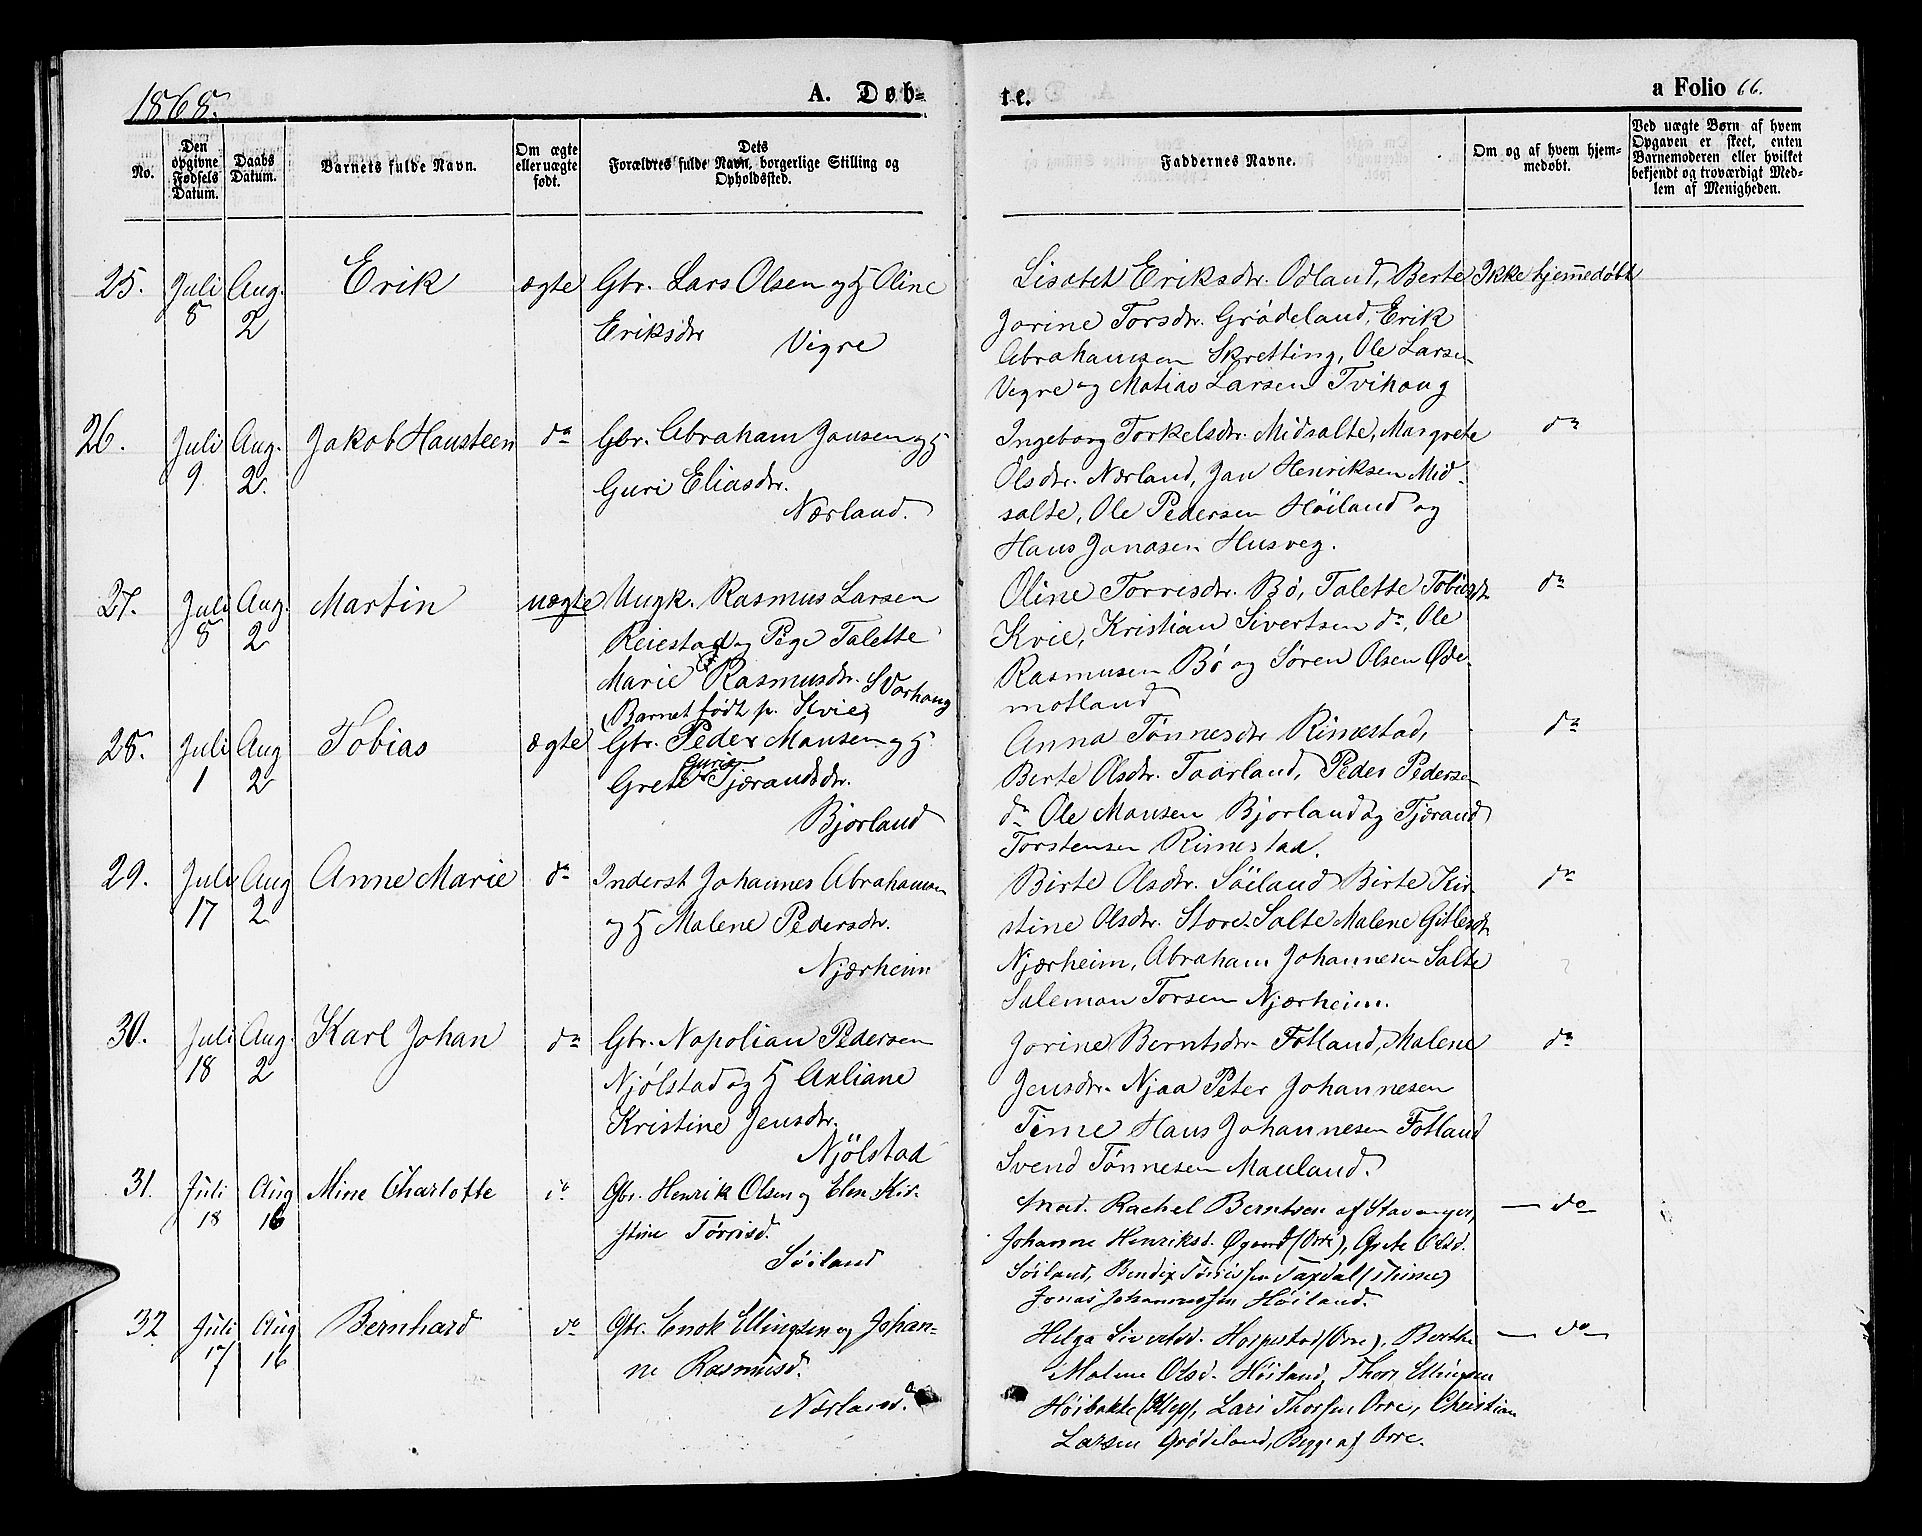 1868.
A. Døb-
te.
a Folio 66.
No.
Den opgivne Fødsels Datum.
Daabs Datum.
Barnets fulde Navn.
Om ægte eller uægte født.
Dets Forældres fulde Navn, borgerlige Stilling og Opholdssted.
Faddernes Navne.
Om og af hvem hjem- medøbt.
Ved uægte Børn af hvem
Opgaven er skeet, enten
Barnemoderen eller hvilket
bekjendt og troværdigt Med-
lem af Menigheden.
25. Juli 8 Aug. 2 Erik ægte
Gbr. Lars Olsen og H Oline
Eriksdtr Vigre
Lisabet Eriksdtr. Odland, Berte
Jorine Torsdtr. Grødeland, Erik
Abrahamsen Skretting, Ole Larsen
Vigre og Matias Larsen Tvihaug
Ikke hjemmedøbt
26. Juli 9 Aug. 2. Jakob Hansteen do
Gbr. Abraham Jansen og H
Guri Eliasdtr.
Nærland.
Ingeborg Torkelsdtr. Midsalte, Margrete
Olsdtr. Nærland, Jan Henriksen Mid-
salte, Ole Pedersen Höiland og
Hans Jonasen Husveg.
do
27. Juli 8 Aug. 2 Martin uægte
Ungk. Rasmus Larsen
Reiestad og Pige Talette
Marie Rasmusdtr. S Varhaug
(Barnet født p. Kvie)
Oline Torrisdtr. Bø, Talette
Kvie, Kristian Sivertsen do, Ole
Rasmusen Bø og Søren Olsen Øde-
motland
do
28. Juli 1 Aug 2 Tobias ægte
Gbr. Peder Mansen og H
Grete Guria Tjærandsdtr.
Bjorland
Anna Tønnesdtr Rimestad,
Berte Olsdtr. Taarland, Peder Pedersen
do Ole Mansen Bjorland og Tjærand
Torstensen Rimestad.
do
29. Juli 17 Aug 2 Anne Marie do
Inderst Johannes Abrahamsen
og H Malene Pedersdtr.
Njærheim
Birte Olsdtr. Söiland Birte Kir-
stine Olsdtr. Store-Salte Malene Gitlesdt.
Njærheim, Abraham Johannesen Salte
Saleman Torsen Njærheim.
do
30. Juli 18 Aug. 2 Karl Johan do
Gbr. Napolian Pedersen
Njølstad og H Axliane
Kristine Jensdtr.
Njölstad
Jorine Berntsdtr. Fotland, Malene
Jensdtr. Njaa Peter Johannesen
Time Hans Johannesen Fotland
Svend Tønnesen Mauland.
do
31. Juli 18 Aug 16 Mine Charlotte do
Gbr. Henrik Olsen og Elen Kir-
stine Tørrisd.
Söiland
Mad. Rachel Berntsen af Stavanger,
Johanne Henriksd. (Orre), Grete Olsd.
Söiland, Bendix Tørrissen Taxdal (Thime)
Jonas Johannessen Höiland.
— do
32 Juli 17 Aug 16 Bernhard do
Gbr. Enok Ellingsen og Johan-
ne Rasmusd.
Nærland.
Helga Sivertsd. Horpestad (Orre), Berthe
Malene Olsd. Höiland, Thor Ellingsen
Höibakke (Klep), Lars Thorsen Orre, Christian
Larsen Grødeland, Begge af Orre.
— do —